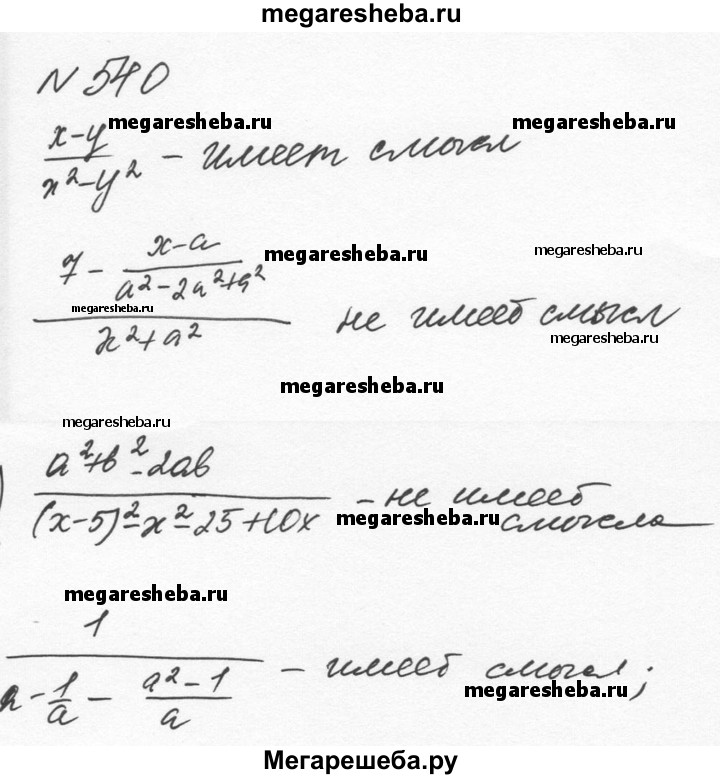 megaresheba.ru
N 540
x-y / x²-y² - имеет смысл
megaresheba.ru megaresheba.ru
7 - x-a / a²-2a²+a²
megaresheba.ru megaresheba.ru
x²+a² не имеет смысл
megaresheba.ru megaresheba.ru
megaresheba.ru
megaresheba.ru
a²+b²-2ab
(x-5)²-x²-25+10x - не имеет смысла
megaresheba.ru
megaresheba.ru
1
a - 1/a - a²-1 / a - имеет смысл;
megaresheba.ru
Мегарешеба.ру